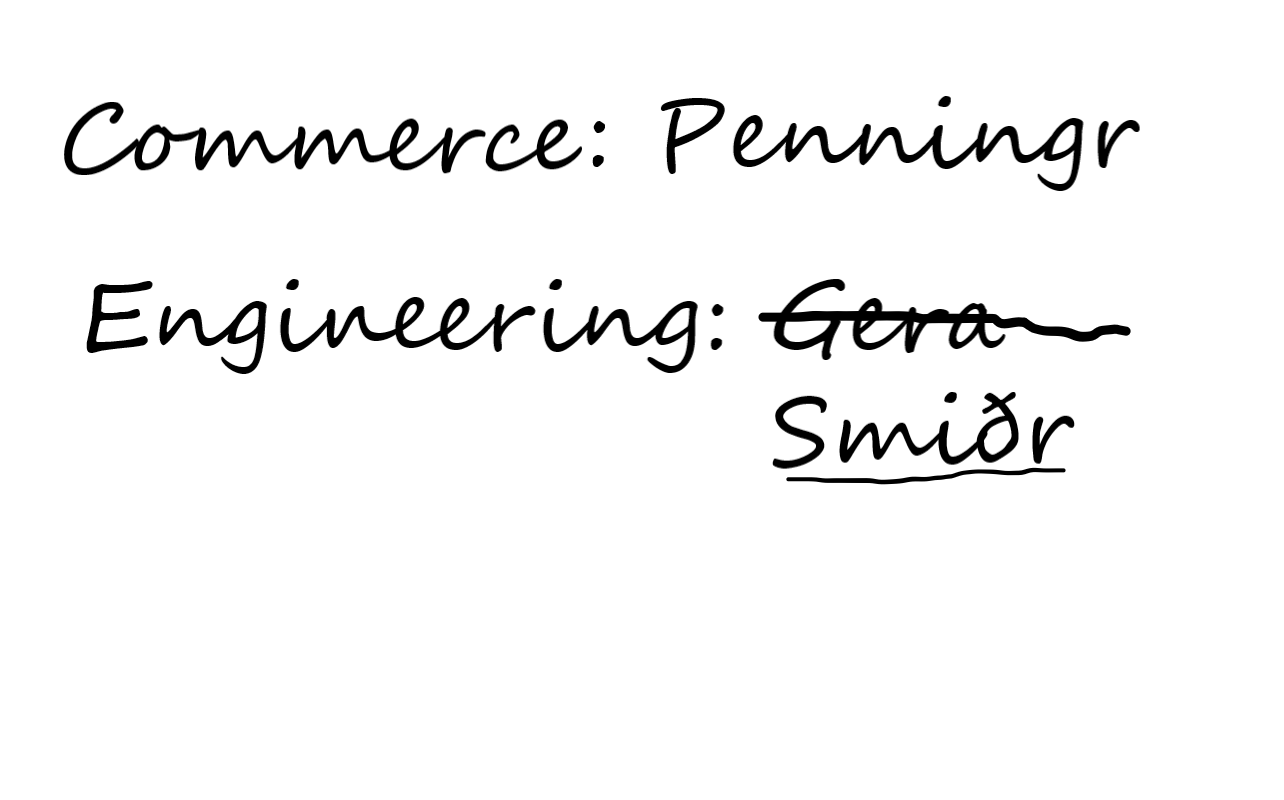 Commerce: Penningr
Engineering: Gera
Smiðr